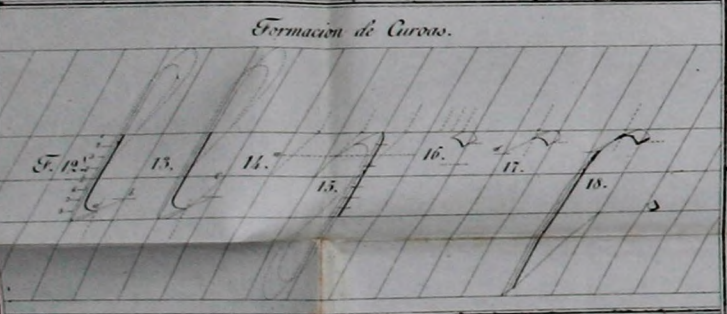 Formacion de Curvas.
F. 12. 13. 14. 15. 16. 17. 18.